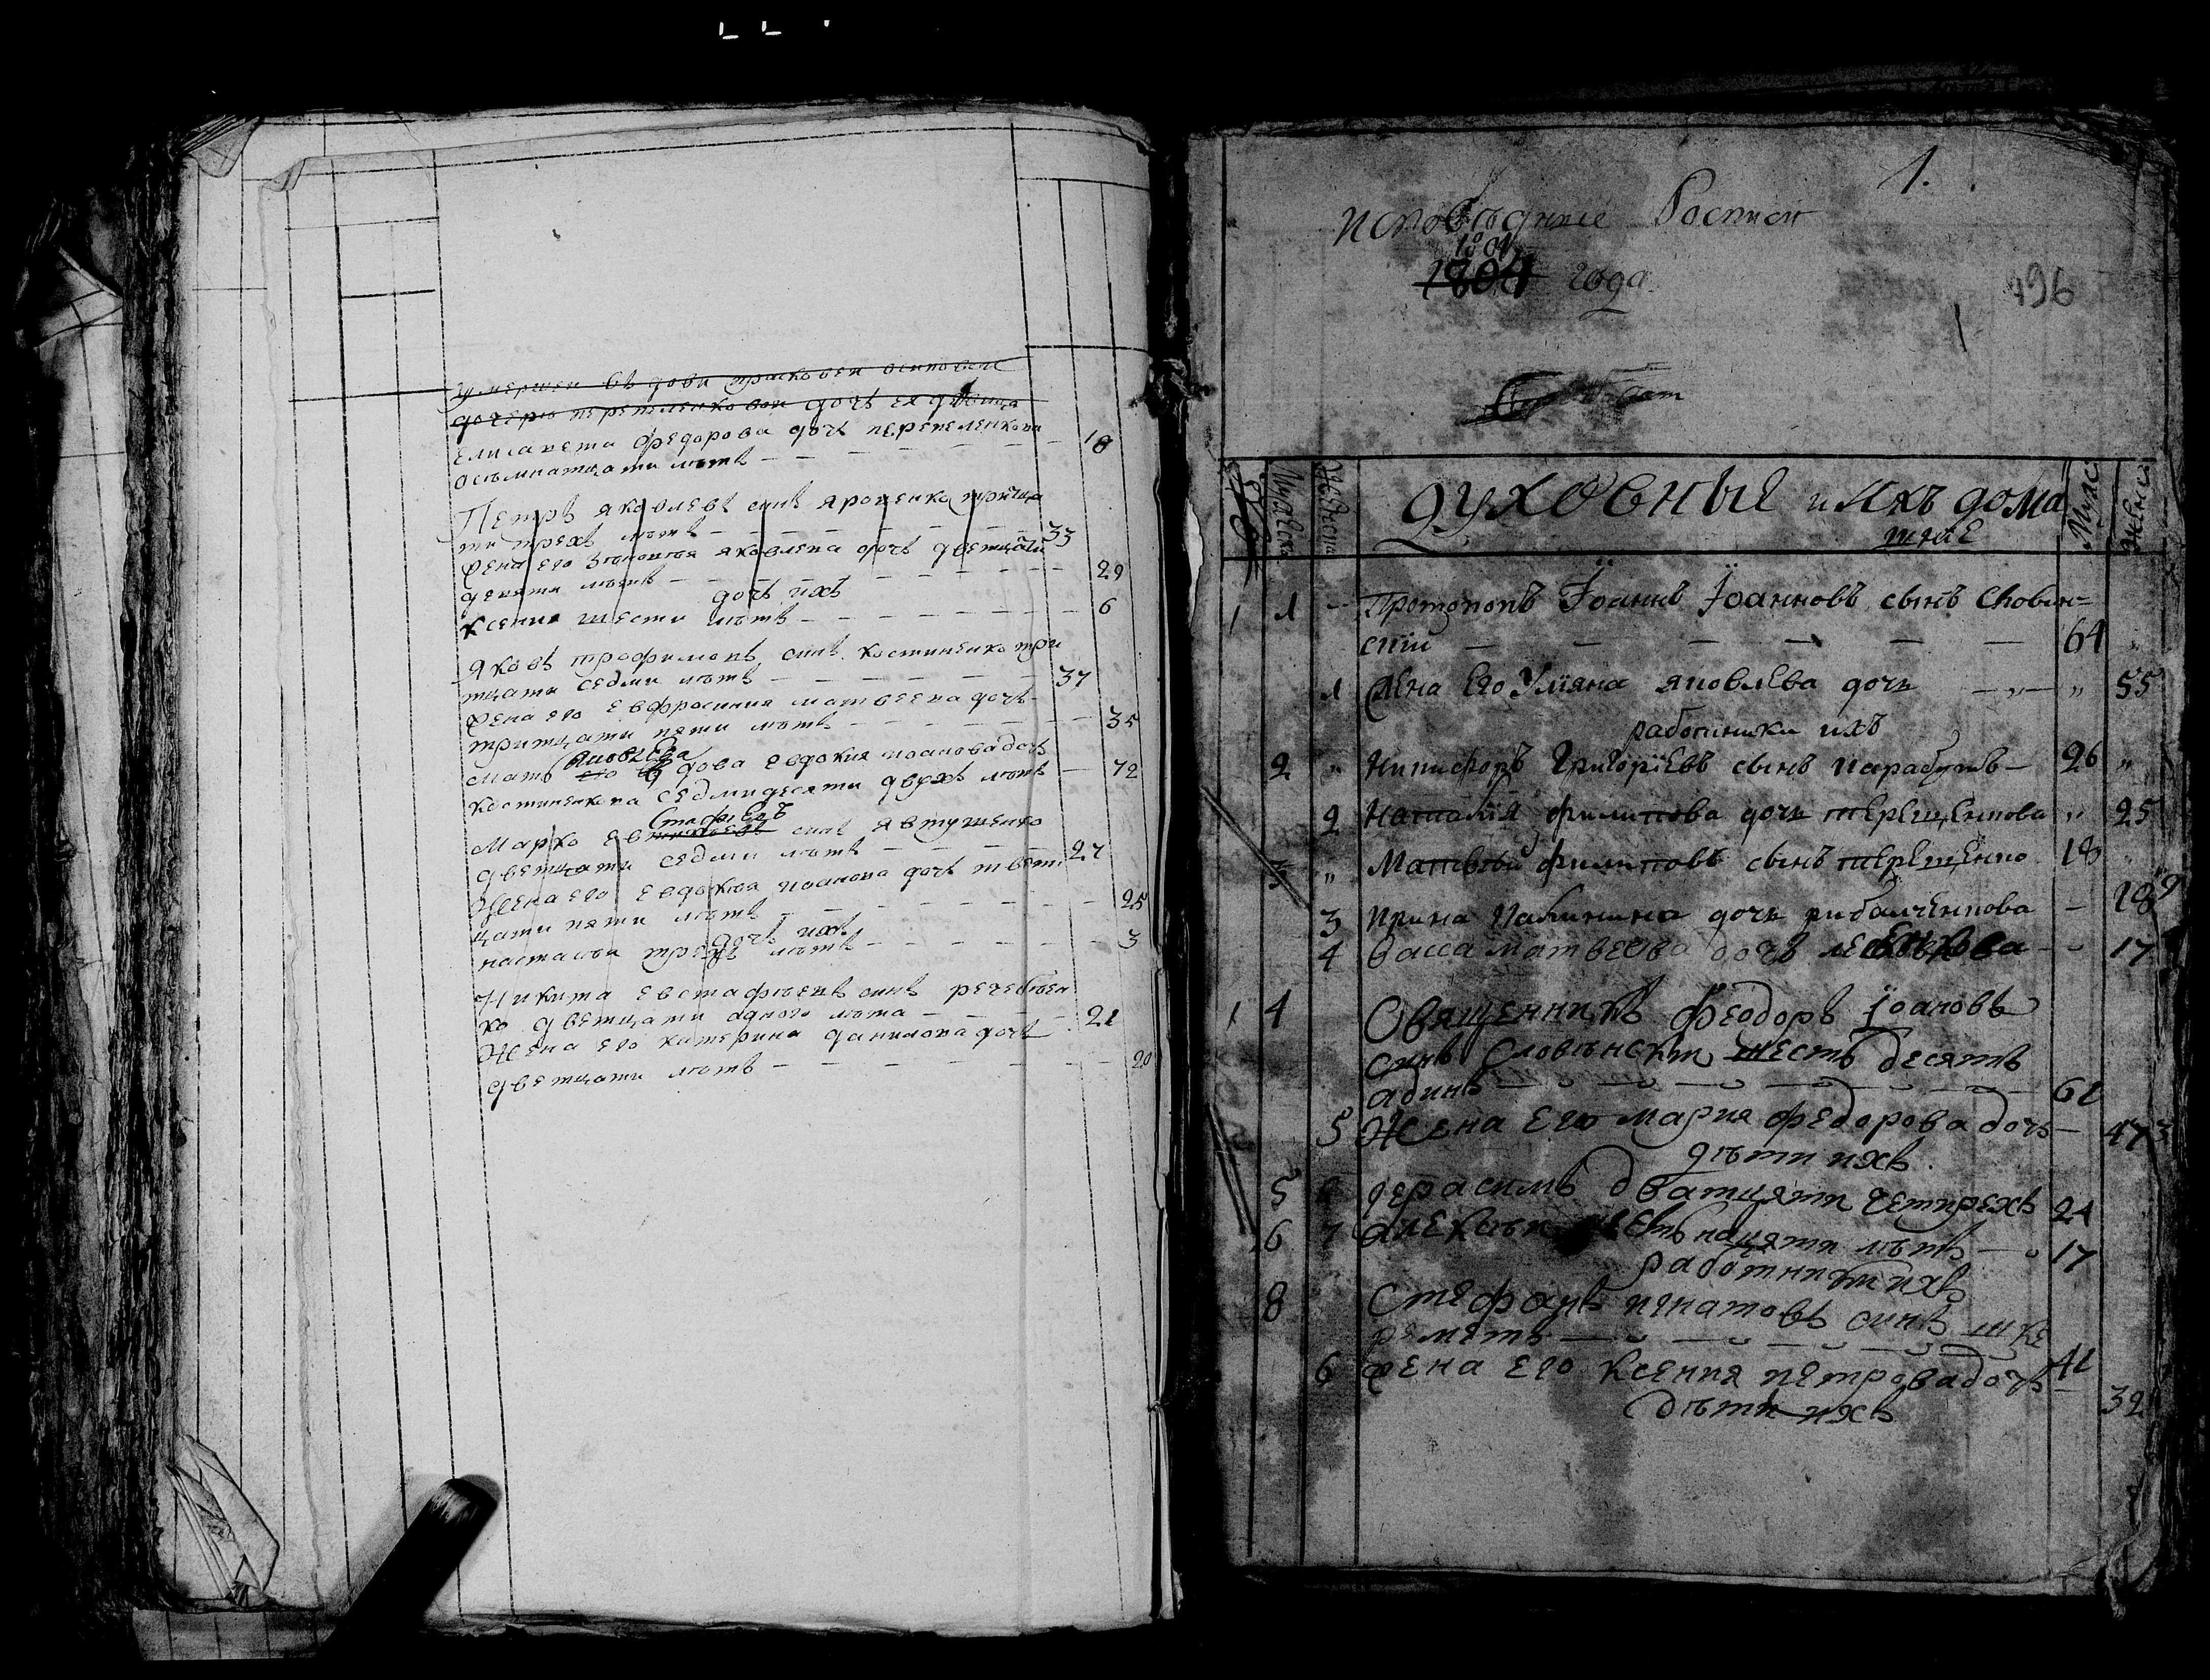 умершей вдови прасковеи осиповой
дочерю перепеленковои дочь ея девица
Елисавета федорова дочь перепеленкова
осьмнатцати лѣтъ — — — — 18
Петръ яковлевъ синъ ярошенко тритца
ти трехъ лѣтъ — — — — 33
жена его яковлева дочь дветцати
девяти лѣтъ — — — — 29
дочь ихъ
Ксения шести лѣтъ — — — — 6
Яковъ трофимовъ синъ костиненко три
тцати седми лѣтъ — — — — 37
жена его Евфросиния матвеева дочь
тритцати пяти лѣтъ — — — — 35
Яковлева
мать его вдова евдокия иоанова дочь
костиненкова седмидесяти двухъ лѣтъ — 72
Стафіевъ
Марко синъ явтушенко
дветцати седми лѣтъ — — — 27
Жена его Евдокия иоанова дочь тветт
цати пяти лѣтъ — — — — 25
дочь ихъ
настасия трехъ лѣтъ — — — — 3
Никита евстафиевъ синъ
ко дветцати одного лѣта — — — 21
Жена его катерина данилова дочь
дветцати лѣтъ — — — — 20
1.
исповѣдние Росписи
1801
1804 года
496
Мужеска
Женска
Духовные и ихъ дома
шние
Мужес
Женск
1 1 Протопопъ Іоаннъ Іоанновъ сынъ Словин=
скій — — — — — 64 „
1 Жена Его Уліяна яковлева дочь — „ — „ 55
работники ихъ
2 „ Никифоръ Григоріевъ сынъ — 26 „
2 Наталія филипова дочь терещенкова „ 25
3 „ Матвѣй филиповъ сынъ терещенко 18 „
3 Ирина Калинина дочь рибалченкова — 18
4 васса матвеева дочь — 17
1 4 Священникъ феодоръ іоановъ
синъ Словѣнскій шестьдесятъ
адинъ — — — — — 61
5 Жена Его мария федорова дочь — 47
дѣти ихъ
5 герасимъ дватцяти четирехъ 24
6 алексѣй надцяти лѣтъ — 17
работники ихъ
8 Стефанъ игнатовъ синъ
— — — — — 41
6 жена его ксения петрова дочь — 32
дѣти ихъ